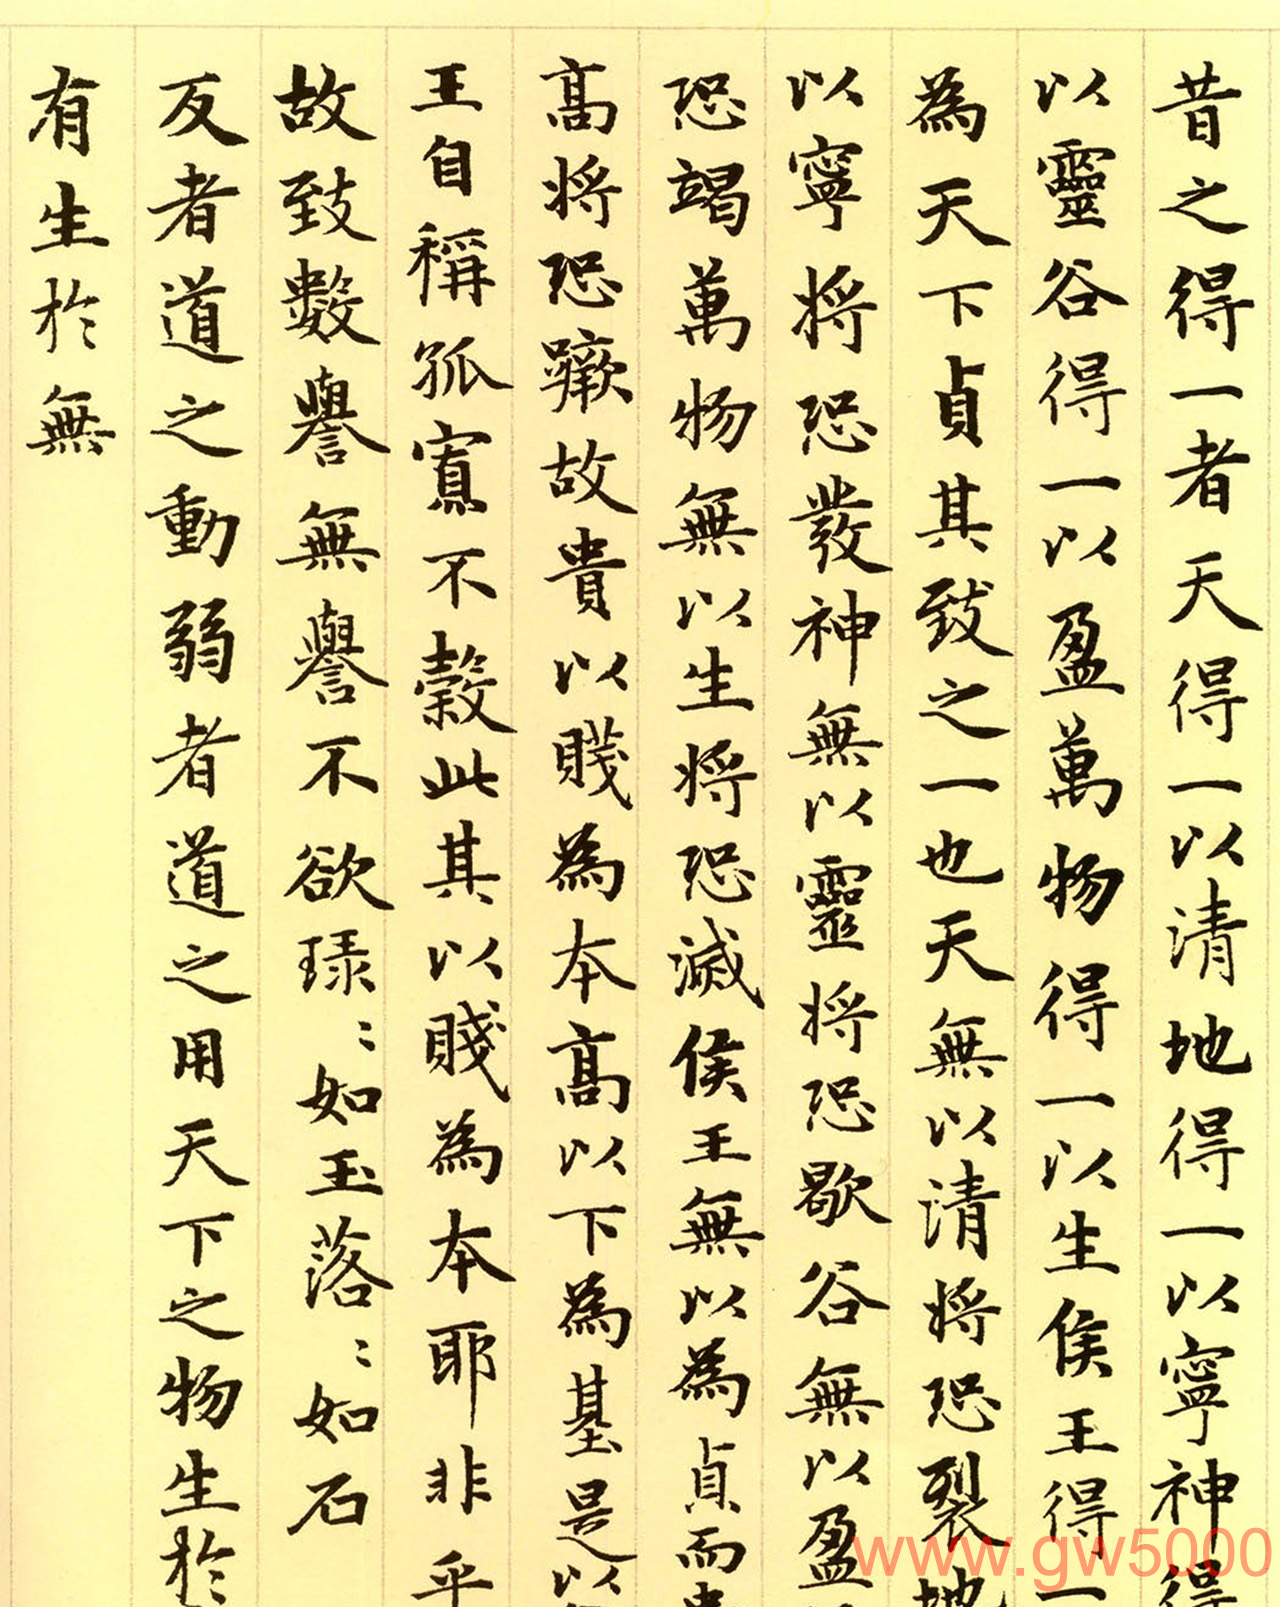 昔之得一者天得一以清地得一以寧神得
以靈谷得一以盈萬物得一以生侯王得一
為天下貞其致之一也天無以清將恐裂地
以寧將恐發神無以靈將恐歇谷無以盈
恐竭萬物無以生將恐滅侯王無以為貞而貴
高將恐蹶故貴以賤為本高以下為基是以侯
王自稱孤寡不穀此其以賤為本耶非乎
故致數譽無譽不欲琭〻如玉落〻如石
反者道之動弱者道之用天下之物生於
有生於無
www.gw5000